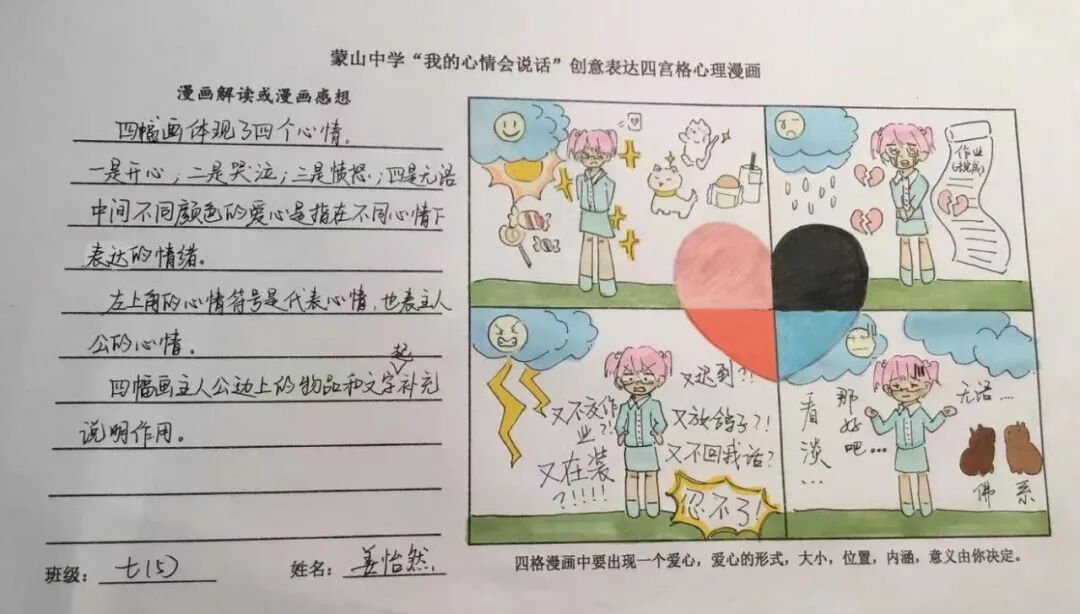 蒙山中学“我的心情会说话”创意表达四宫格心理漫画
漫画解读或漫画感想
四幅画体现了四个心情。
一是开心；二是哭泣；三是愤怒；四是无语
中间不同颜色的爱心是指在不同心情下
表达的情绪。
左上角的心情符号是代表心情，也表主人
公的心情。
起
四幅画主人公边上的物品和文字补充
说明作用。
班级：七(5)
姓名：姜怡然
作业
又不交作
业?!
又在装
?!!!!
又迟到?!!
又放鸽子?!
又不回我话?
忍不了!
看淡...
那好吧...
无语...
佛系
四格漫画中要出现一个爱心，爱心的形式，大小，位置，内涵，意义由你决定。